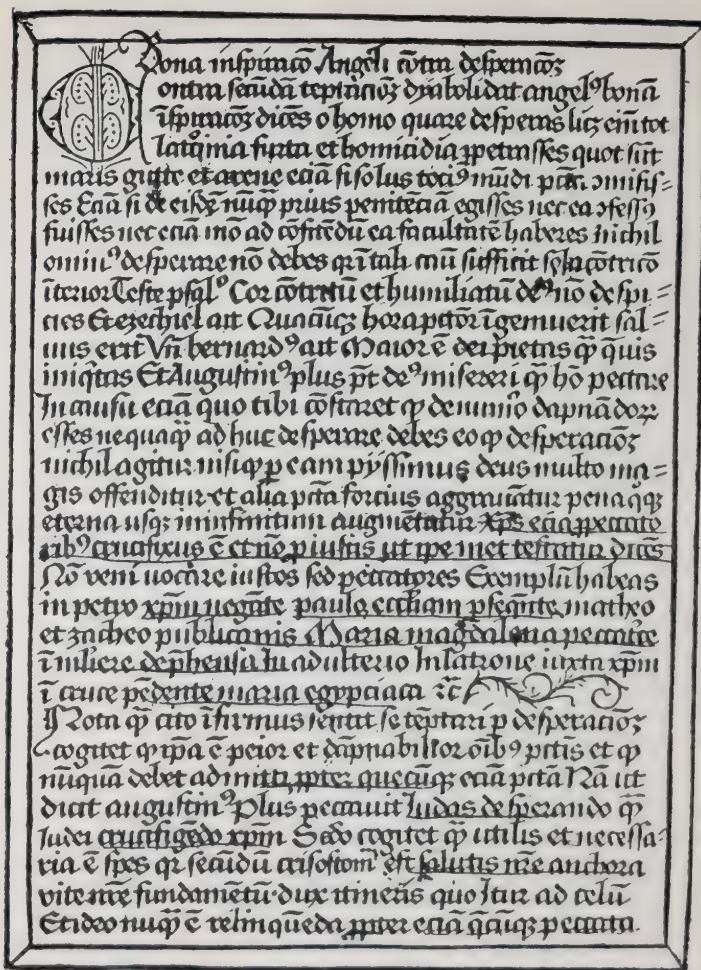 Bona inspiracō Angeli cōtra desperacōꝫ
Contra secūdā teptacioꝫ dyaboli dat angelꝰ bonā
īspiracōꝫ dicēs o homo quare desperas licꝫ em̄ tot
latrocinia furta et homicidia ꝑpetrasses quot sūt
maris gutte et arene eciā si solus tociꝰ mūdi pctā ꝯmisis=
ses Eciā si de eisdē nūqꝫ prius penitēciā egisses nec ea ꝯfessꝰ
fuisses nec eciā mō ad cōfitēdū ea facultatē haberes Nichil
ominꝰ desperare nō debes qꝛ ī tali casu sufficit sola cōtricō
īterior Teste psalꝰ Cor cōtritū et humiliatū deꝰ nō despi=
cies Et ezechiel ait Quacūqꝫ hora pctor īgemuerit sal=
uus erit Vn̄ bernardꝰ ait Maior ē dei pietas qꝫ quis
iniqitas Et Augustinꝰ plus pt deꝰ misereri qꝫ hō peccare
In causu eciā quo tibi cōstaret qꝫ de numō dapnādoꝝ
esses nequaqꝫ ad huc desperare debes eo qꝫ desperacioꝫ
nichil agitur nisi qꝫ ꝑ eam pijssimus deus multo ma=
gis offenditur et alia pctā forcius aggrauātur pena qꝫ
eterna usqꝫ in infinitum augmētatur Xp̄s eciā ꝓ peccato
ribꝰ crucifixus ē et nō ꝓ iustis ut ipe met testatur dicēs
Nō veni uocare iustos sed peccatores Exemplū habeas
in petro xp̄m negāte paulo eccliam ꝑseqūte matheo
et zacheo publicanis Maria magdalena peccatrice
ī muliere dep̄hensa In adulterio In latrone iuxta xp̄m
ī cruce pēdente maria egypciaca ⁊c̄
Nota qꝫ cito īfirmus sentit se tēptari ꝑ desperacioꝫ
cogitet qꝫ ip̄a ē peior et dāpnabilior oībꝰ pctīs et qꝫ
nūquā debet admitti ꝓpter quecūqꝫ eciā pctā Nā ut
dicit augustinꝰ Plus peccauit Iudas desperando qꝫ
Iudei crucifigēdo xp̄m Sc̄do cogitet qꝫ utilis et necessa=
ria ē spes qꝛ secūdū crisostomū est salutis nr̄e anchora
vite nr̄e fundamētū dux itineris quo Itur ad celū
Et ideo nuqꝫ ē relinquēda ꝓpter eciā qcūqꝫ peccata.